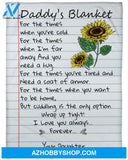 Daddy's Blanket
For the times
when you're cold.
For the times
when I'm far
away And you
need a hug.
For the times you're tired and
Need a coat of armor.
For the times when you want
to be home,
But cuddling is the only option
Wrap up tight
I Love you always,
Forever...
Your Daughter
AZHOBBYSHOP.COM